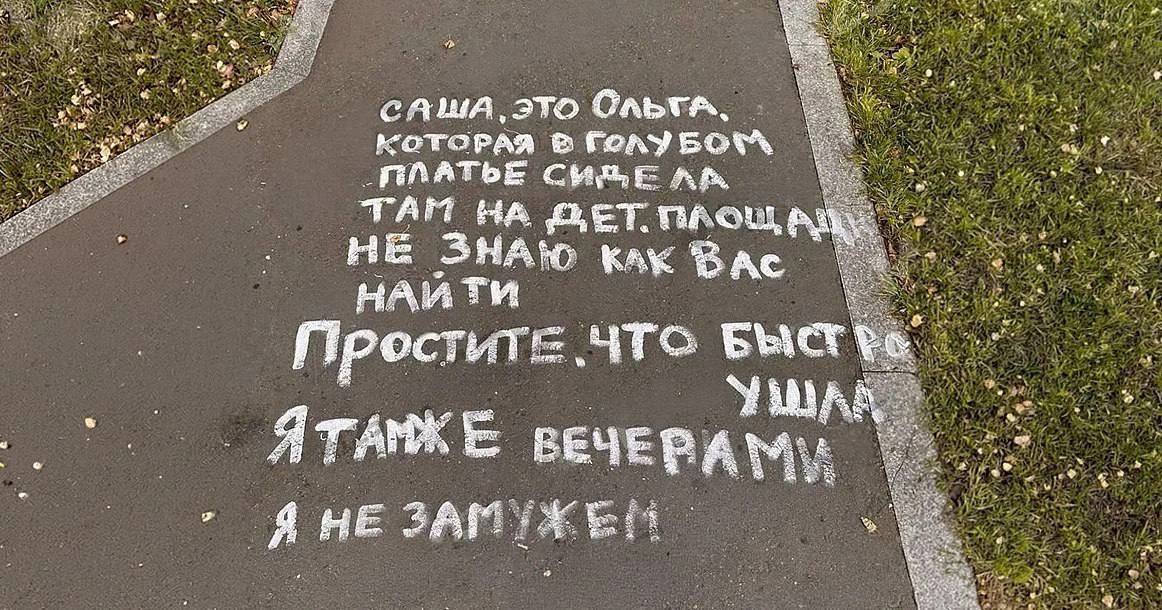 САША, ЭТО ОЛЬГА.
КОТОРАЯ В ГОЛУБОМ
ПЛАТЬЕ СИДЕЛА
ТАМ НА ДЕТ. ПЛОЩАДКЕ
НЕ ЗНАЮ КАК ВАС
НАЙТИ
ПРОСТИТЕ, ЧТО БЫСТРО
УШЛА
Я ТАМЖЕ ВЕЧЕРАМИ
Я НЕ ЗАМУЖЕМ